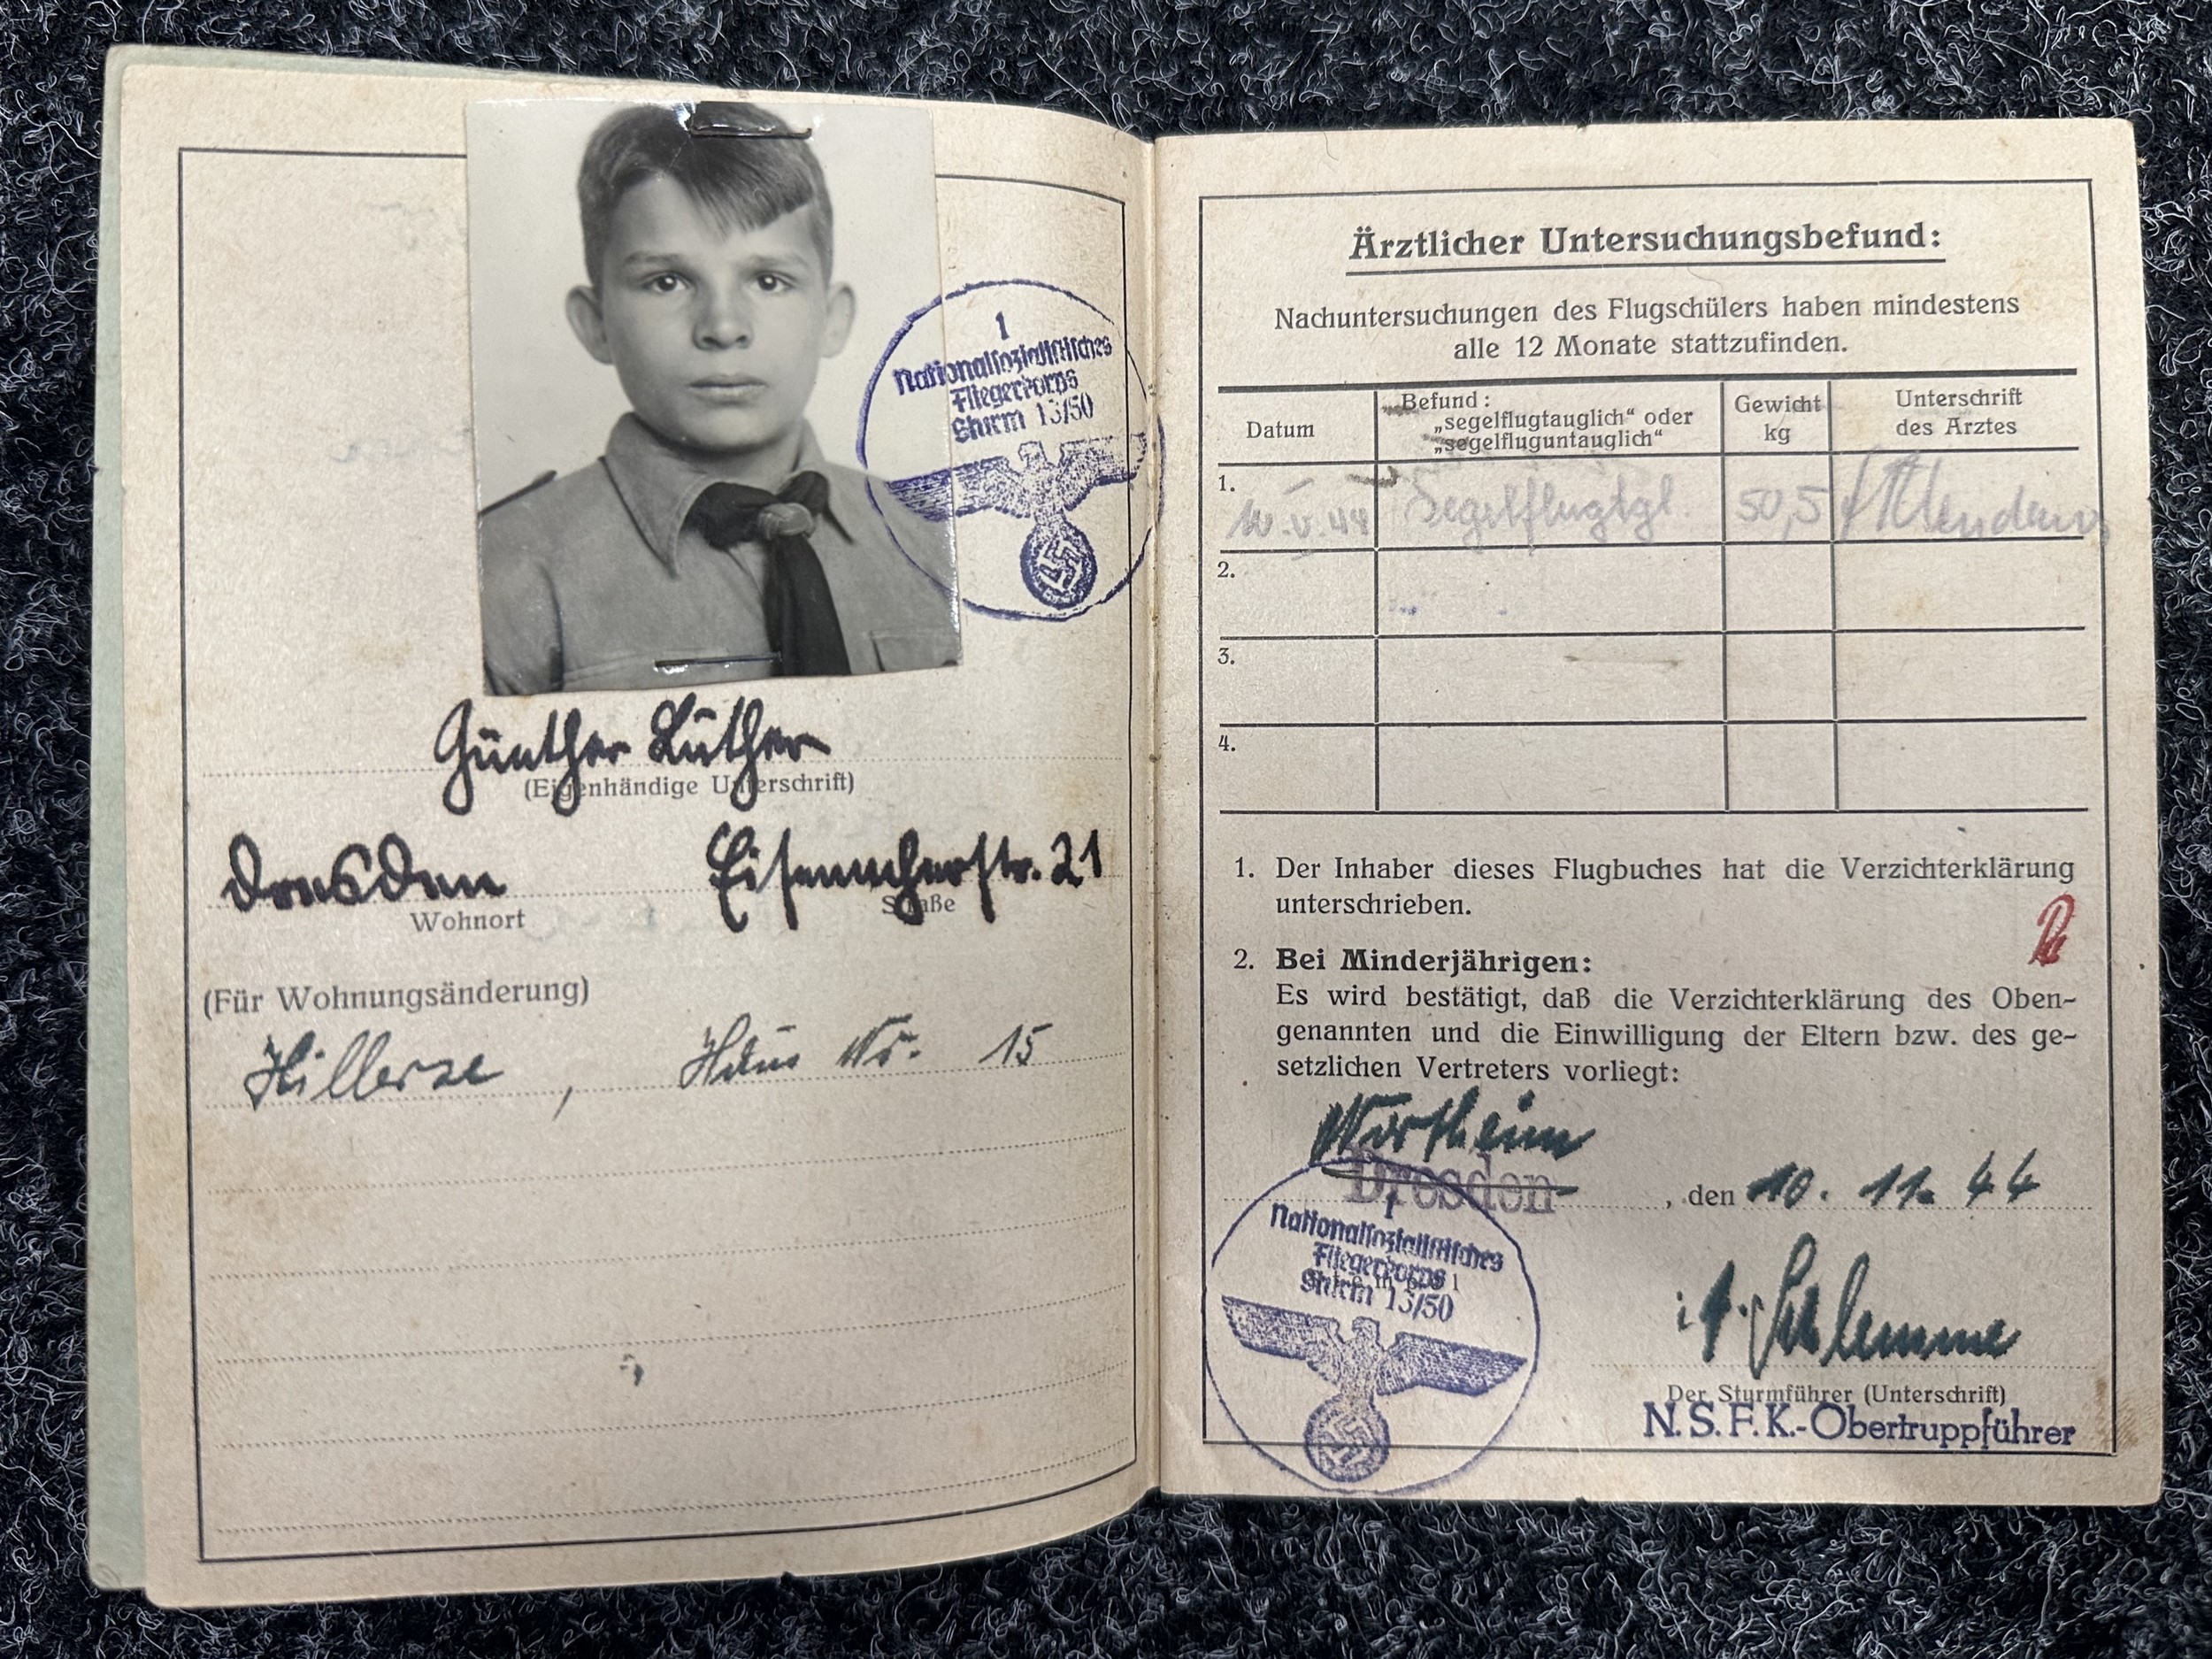 1
Nationalsozialistisches
Fliegerkorps
Sturm 13/50
Günther Luther
(Eigenhändige Unterschrift)
Dresden Eisenacherstr. 21
Wohnort Straße
(Für Wohnungsänderung)
Hillerse, Haus Nr. 15
Ärztlicher Untersuchungsbefund:
Nachuntersuchungen des Flugschülers haben mindestens
alle 12 Monate stattzufinden.
Datum
Befund:
„segelflugtauglich“ oder
„segelfluguntauglich“
Gewicht
kg
Unterschrift
des Arztes
1. 10.V.44 Segelflugtgl 50,5
2.
3.
4.
1. Der Inhaber dieses Flugbuches hat die Verzichterklärung
unterschrieben.
2. Bei Minderjährigen:
Es wird bestätigt, daß die Verzichterklärung des Oben-
genannten und die Einwilligung der Eltern bzw. des ge-
setzlichen Vertreters vorliegt:
Northeim
Dresden, den 10. 11. 44
1
Nationalsozialistisches
Fliegerkorps
Sturm 13/50
Schlemme
Der Sturmführer (Unterschrift)
N.S.F.K.-Obertruppführer